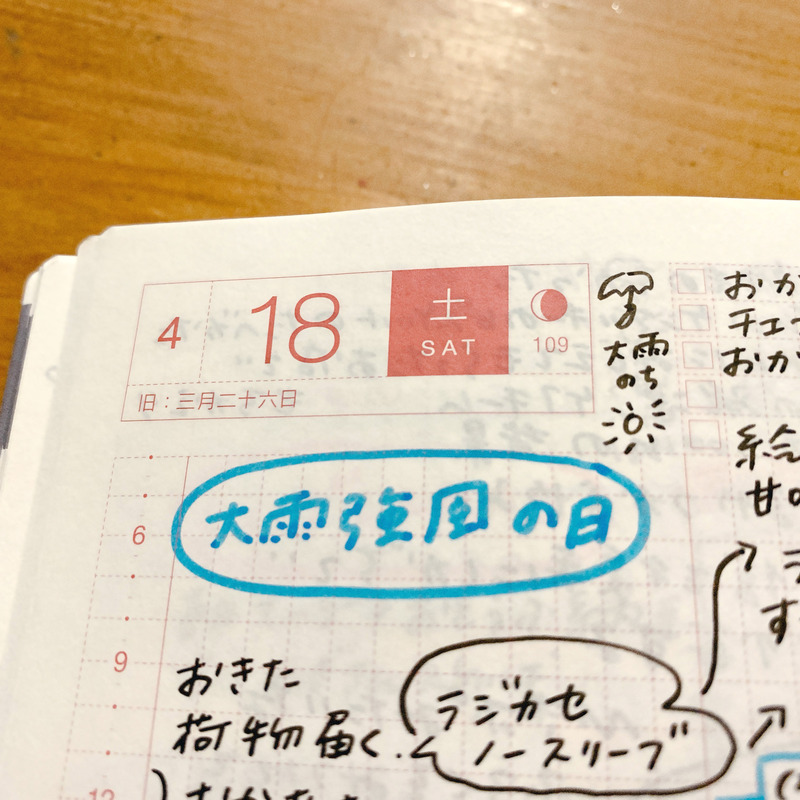 4
18
土
SAT
109
旧：三月二十六日
大雨
のち
おか
チェッ
おか
絵
甘の
ラ
す
大雨強風の日
6
9
おきた
荷物届く.
ラジカセ
ノースリーブ
12